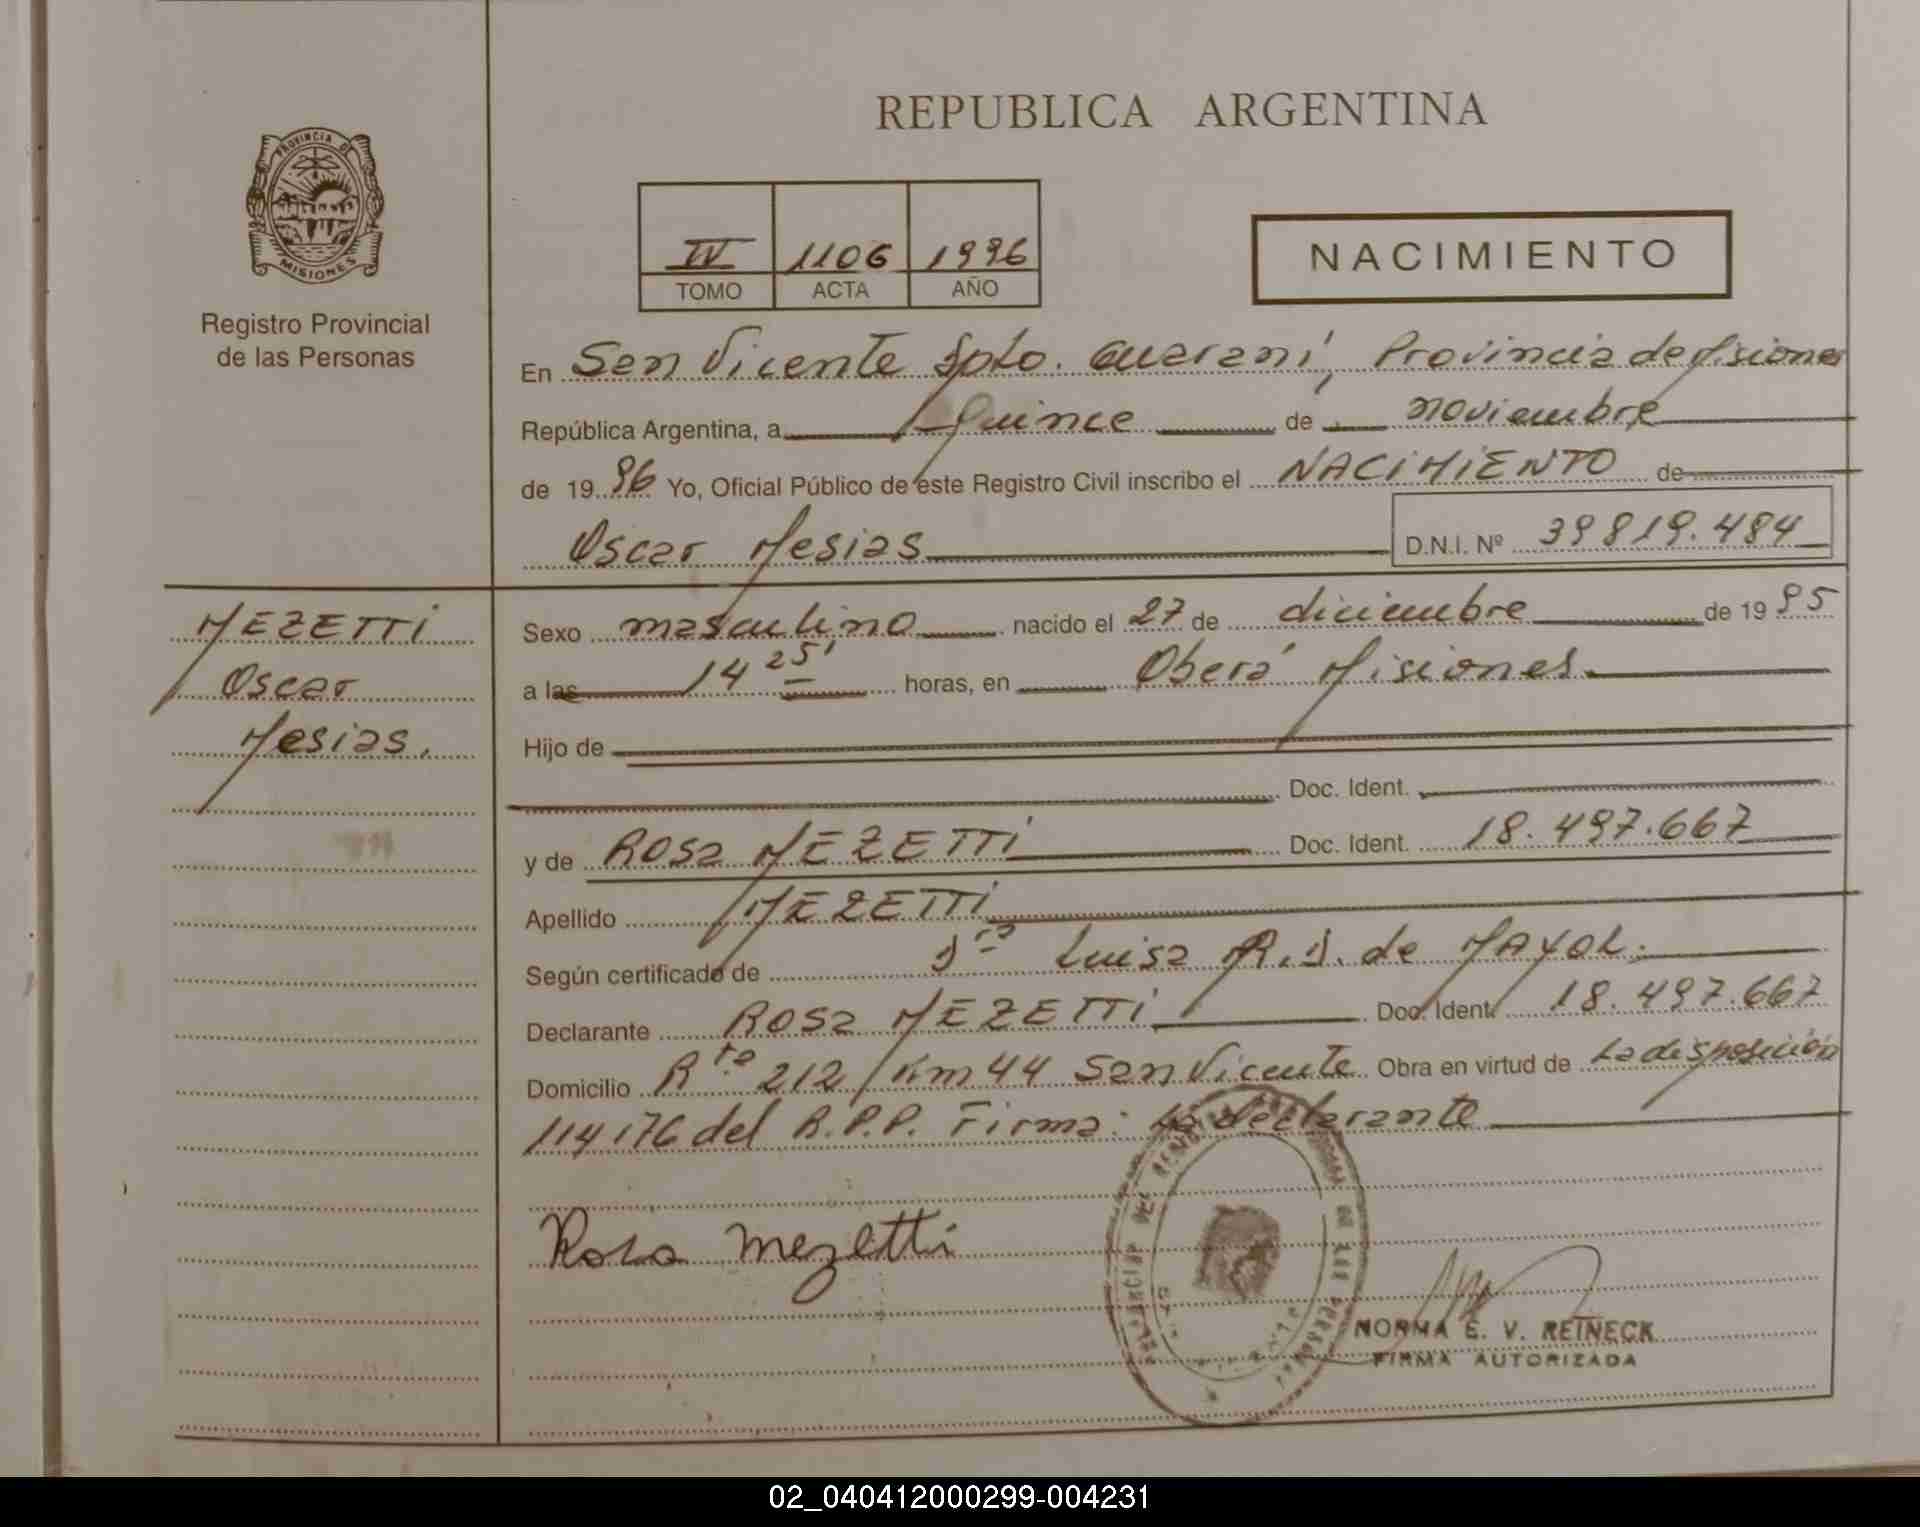 REPUBLICA ARGENTINA
PROVINCIA DE
MISIONES
Registro Provincial
de las Personas
IV 1106 1996
TOMO ACTA AÑO
NACIMIENTO
En San Vicente Dpto. Guaraní, Provincia de Misiones
República Argentina, a Quince de noviembre
de 1996 Yo, Oficial Público de este Registro Civil inscribo el NACIMIENTO de
Oscar Mesias D.N.I. Nº 39819.484
MEZETTI
Oscar
Mesias.
Sexo masculino nacido el 27 de diciembre de 1995
a las 14 25' horas, en Oberá Misiones
Hijo de
Doc. Ident.
y de Rosa MEZETTI Doc. Ident. 18.497.667
Apellido MEZETTI
Según certificado de Dra Luisa R. D. de MAYOL.
Declarante Rosa MEZETTI Doc. Ident. 18.497.667
Domicilio Rta 212 Km 44 San Vicente Obra en virtud de La disposición
114/76 del R.P.P. Firma: La declarante
Rosa Mezetti
NORMA E. V. REINECK
FIRMA AUTORIZADA
02_040412000299-004231